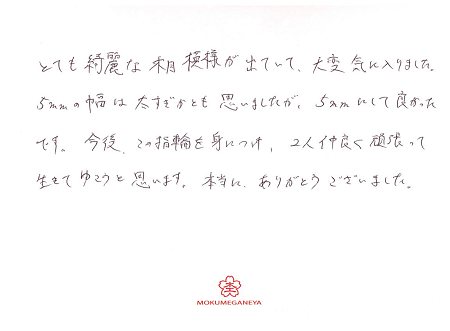 とても綺麗な木目模様が出ていて、大変気に入りました。
5mmの幅は太すぎかとも思いましたが、5mmにして良かった
です。今後、この指輪を身につけ、2人仲良く頑張って
生きてゆこうと思います。本当に、ありがとうございました。
MOKUMEGANEYA